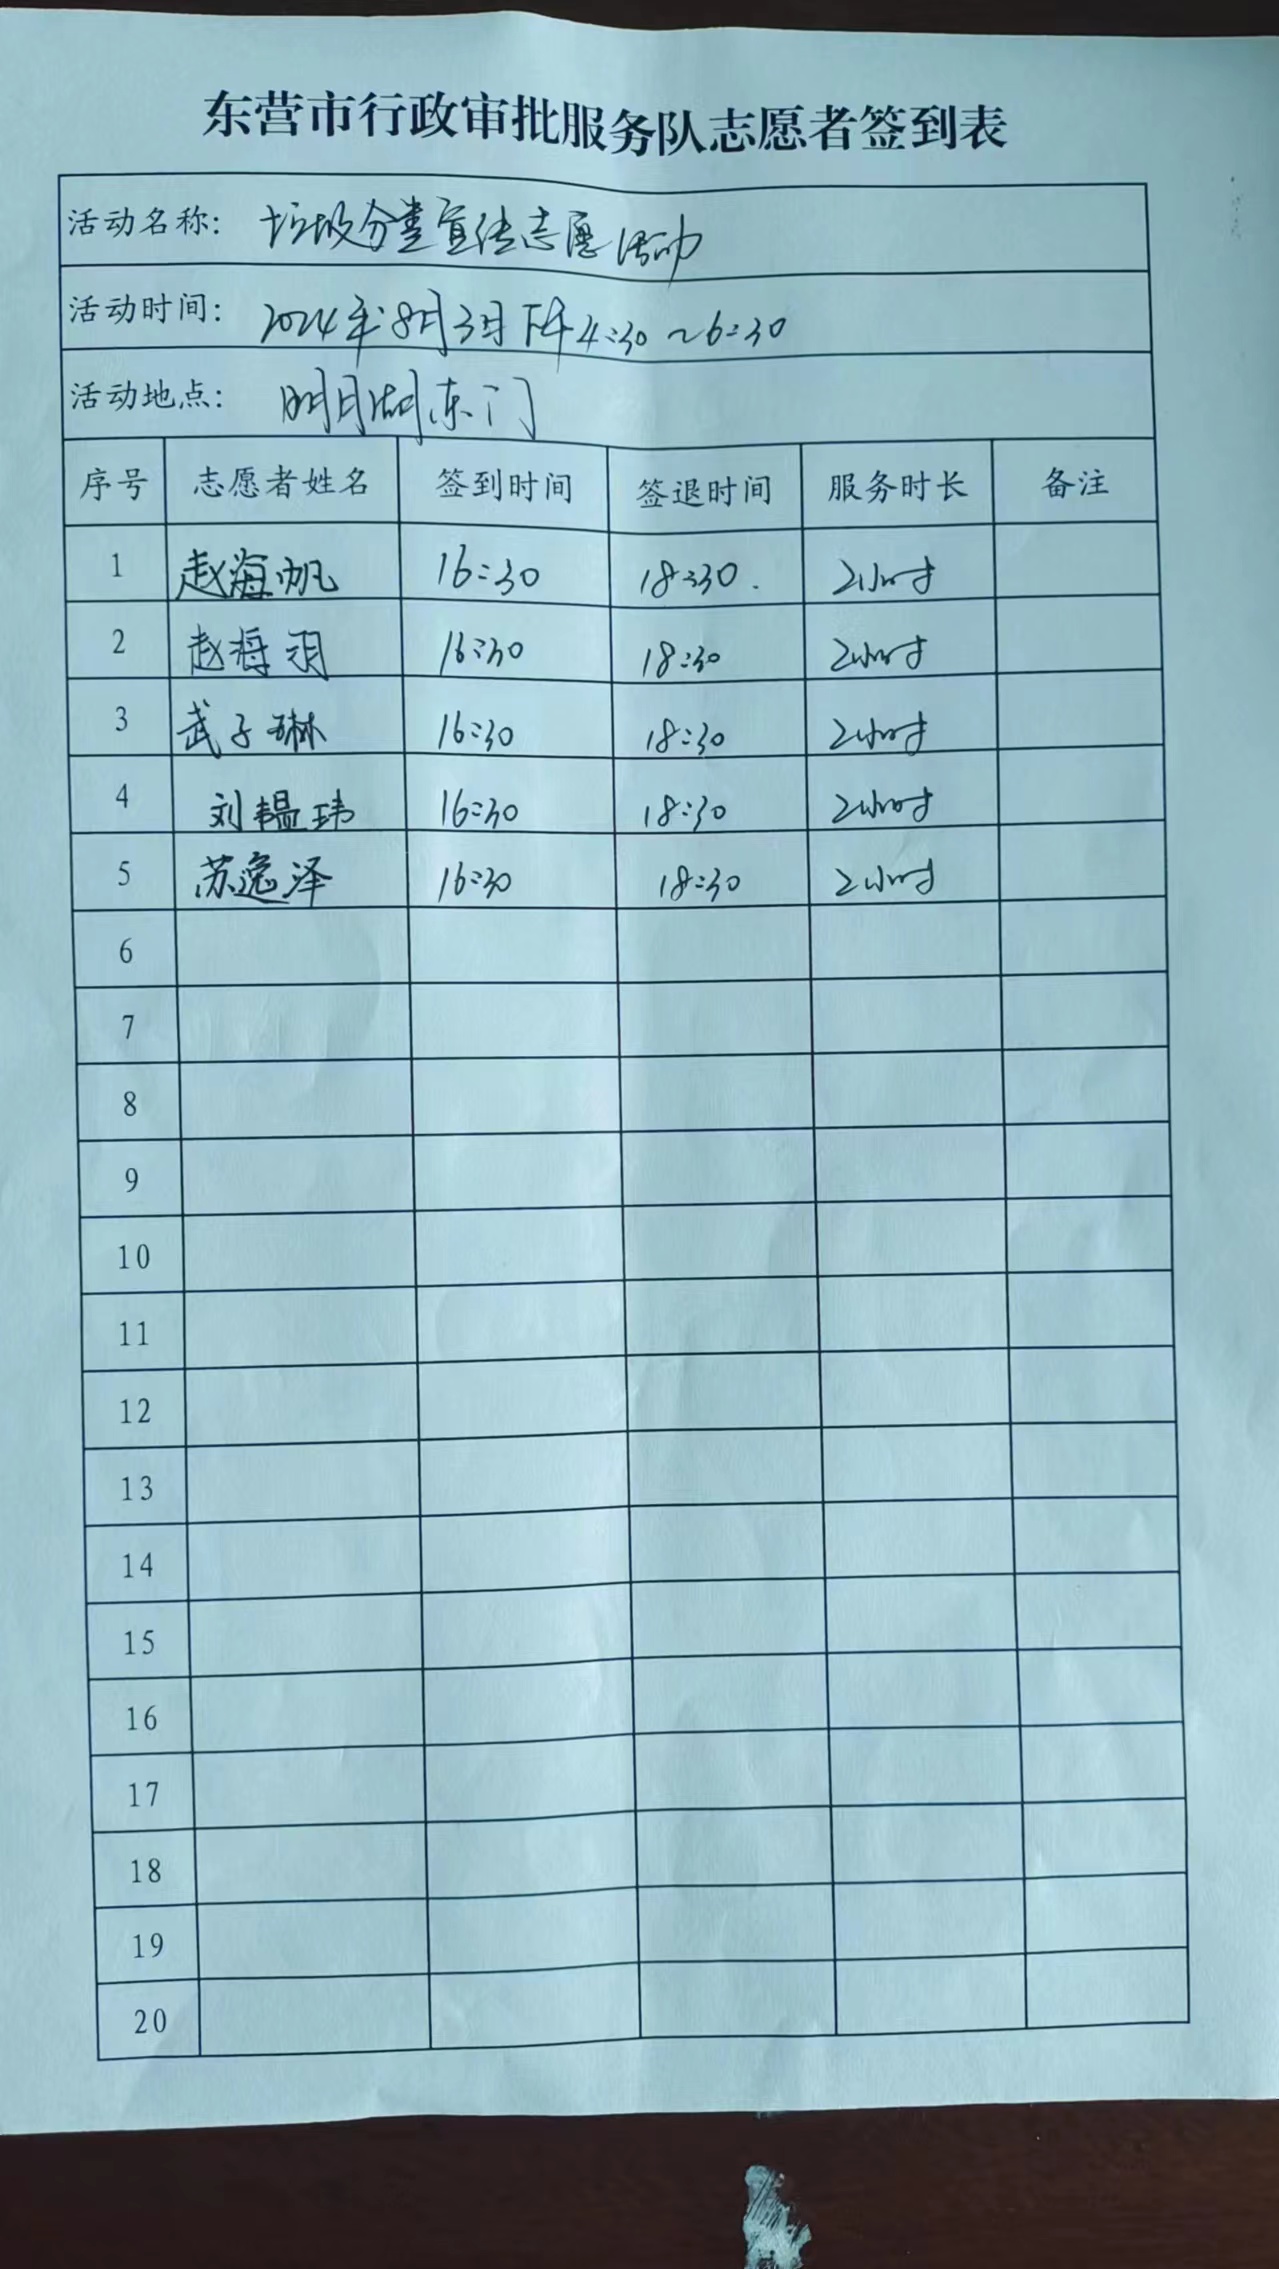 东营市行政审批服务队志愿者签到表
活动名称: 垃圾分类宣传志愿活动
活动时间: 2024年8月3日下午4:30~6:30
活动地点: 明月湖东门
序号 志愿者姓名 签到时间 签退时间 服务时长 备注
1 赵海帆 16:30 18:30. 2小时
2 赵海羽 16:30 18:30 2小时
3 武子琳 16:30 18:30 2小时
4 刘韫玮 16:30 18:30 2小时
5 苏逸泽 16:30 18:30 2小时
6
7
8
9
10
11
12
13
14
15
16
17
18
19
20